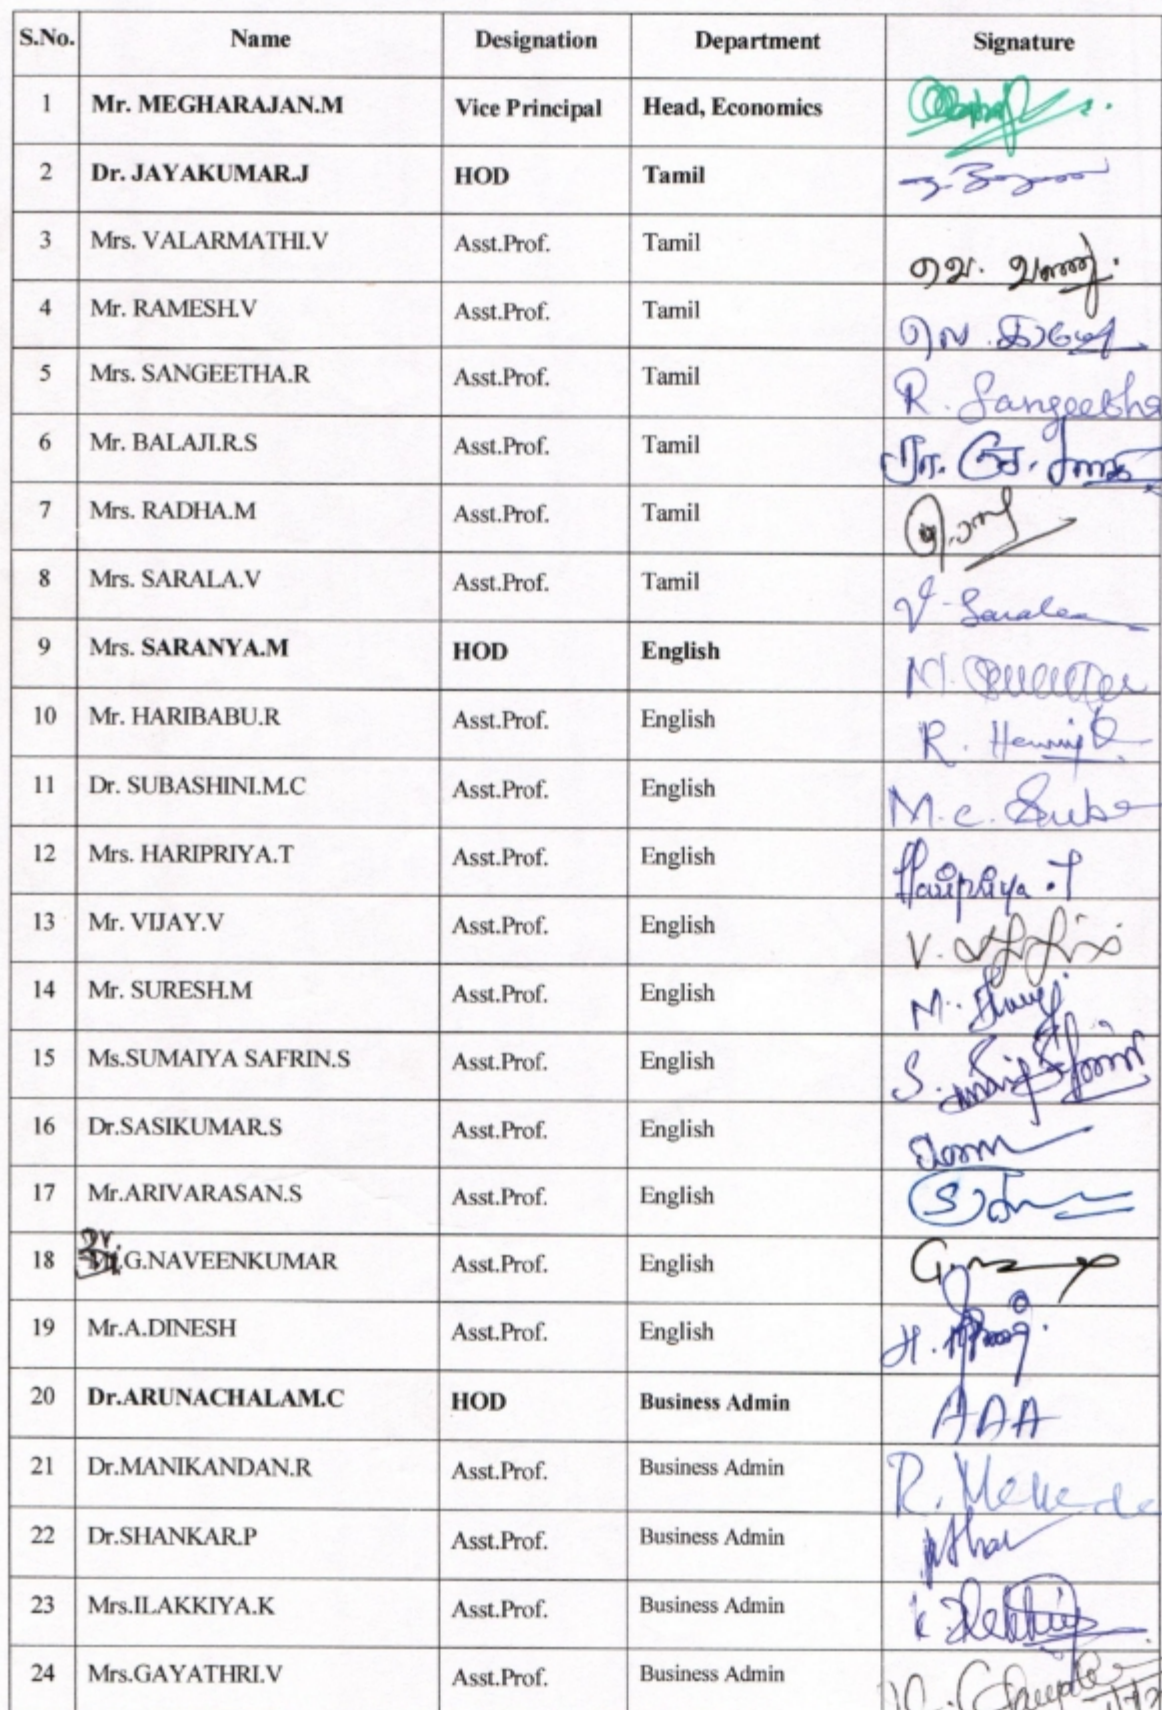 S.No. Name Designation Department Signature
1 Mr. MEGHARAJAN.M Vice Principal Head, Economics
2 Dr. JAYAKUMAR.J HOD Tamil
3 Mrs. VALARMATHI.V Asst.Prof. Tamil
4 Mr. RAMESH.V Asst.Prof. Tamil
5 Mrs. SANGEETHA.R Asst.Prof. Tamil R. Sangeetha
6 Mr. BALAJI.R.S Asst.Prof. Tamil
7 Mrs. RADHA.M Asst.Prof. Tamil
8 Mrs. SARALA.V Asst.Prof. Tamil V. Sarala
9 Mrs. SARANYA.M HOD English
10 Mr. HARIBABU.R Asst.Prof. English
11 Dr. SUBASHINI.M.C Asst.Prof. English M.C. Suba
12 Mrs. HARIPRIYA.T Asst.Prof. English Haripriya.T
13 Mr. VIJAY.V Asst.Prof. English
14 Mr. SURESH.M Asst.Prof. English
15 Ms.SUMAIYA SAFRIN.S Asst.Prof. English
16 Dr.SASIKUMAR.S Asst.Prof. English
17 Mr.ARIVARASAN.S Asst.Prof. English
18 Dr.G.NAVEENKUMAR Asst.Prof. English
19 Mr.A.DINESH Asst.Prof. English
20 Dr.ARUNACHALAM.C HOD Business Admin
21 Dr.MANIKANDAN.R Asst.Prof. Business Admin
22 Dr.SHANKAR.P Asst.Prof. Business Admin
23 Mrs.ILAKKIYA.K Asst.Prof. Business Admin
24 Mrs.GAYATHRI.V Asst.Prof. Business Admin